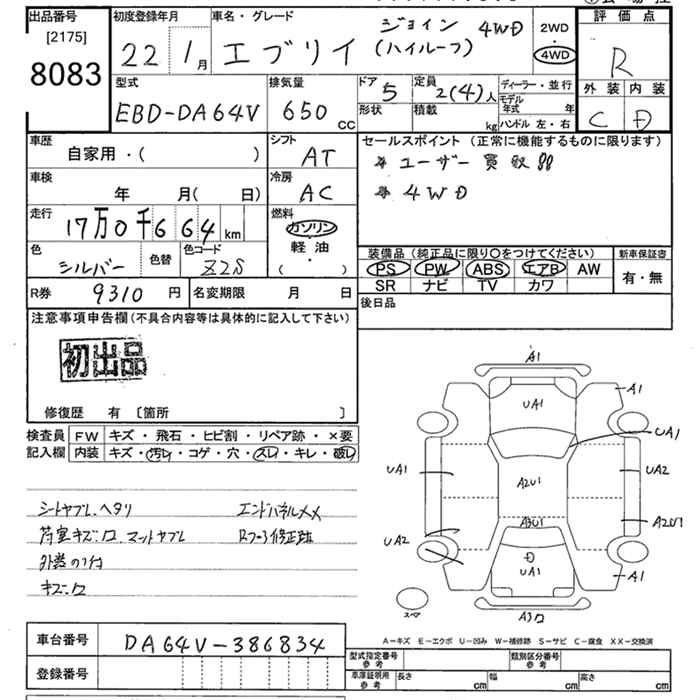 出品番号
[2175]
8083
初度登録年月
22年 1月
車名・グレード
エブリイ ジョイン 4WD
(ハイルーフ)
2WD
4WD
評価点
R
外装 内装
C D
型式
EBD-DA64V
排気量
650 CC
ドア 5
形状
定員 2(4)人
積載 kg
ディーラー・並行
モデル年式 年
ハンドル 左・右
車歴
自家用・( )
シフト
AT
車検
年 月( 日)
冷房
AC
走行
17万0千664km
燃料
ガソリン
軽・油
( ・ )
色
シルバー
色替
色コード
Z2S
R券 9310円
名変期限 月 日
セールスポイント (正常に機能するものに限ります)
* ユーザー買取
* 4WD
装備品 (純正品に限り○をつけてください)
PS PW ABS エアB AW
SR ナビ TV カワ
新車保証書
有・無
後日品
注意事項申告欄 (不具合内容等は具体的に記入して下さい)
初出品
修復歴 有 [箇所 ]
検査員 FW キズ・飛石・ヒビ割・リペア跡・×要
記入欄 内装 キズ・汚レ・コゲ・穴・スレ・キレ・破レ
シートヤブレ、ヘタリ エンドパネルメメ
荷室キズ、穴 マットヤブレ Rフロア修正跡
キズ、穴
A1
UA1
A1
UA1
UA1
A2U1
UA2
A3U1
A2U1
UA2
D
UA1
A1
スペア
A-キズ E-エクボ U-凹み W-補修跡 S-サビ C-腐食 XX-交換済
車台番号 DA64V-386834
登録番号
型式指定番号
参考
類別区分番号
参考
車庫証明用
参考
長さ cm 幅 cm 高さ cm